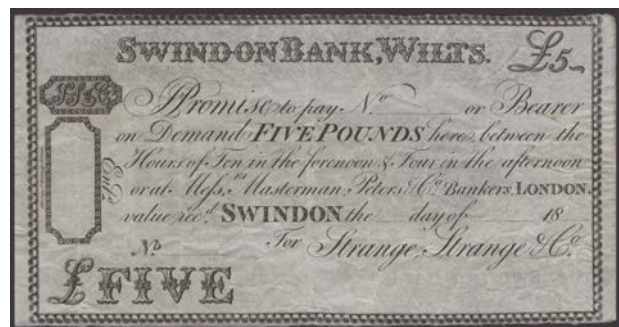 SWINDON BANK, WILTS. £5-
SS&Co
I Promise to pay No or Bearer
on Demand FIVE POUNDS here, between the
Hours of Ten in the forenoon & Four in the afternoon
or at Messrs. Masterman, Peters & Co. Bankers, LONDON.
value recd. SWINDON the day of 18
Entd.
No For Strange, Strange & Co.
£FIVE